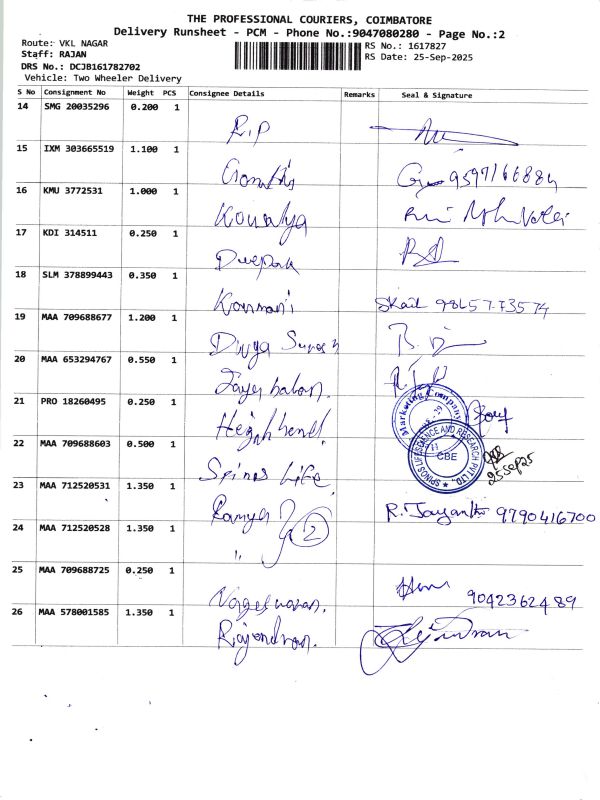 THE PROFESSIONAL COURIERS, COIMBATORE
Delivery Runsheet - PCM - Phone No.:9047080280 - Page No.:2
Route: VKL NAGAR
RS No.: 1617827
Staff: RAJAN
RS Date: 25-Sep-2025
DRS No.: DCJB161782702
Vehicle: Two Wheeler Delivery
S No Consignment No Weight PCS Consignee Details Remarks Seal & Signature
14 SMG 20035296 0.200 1
R.P
15 IXM 303665519 1.100 1
16 KMU 3772531 1.000 1
Kowalya
17 KDI 314511 0.250 1
Deepak
18 SLM 378899443 0.350 1
19 MAA 709688677 1.200 1
Divya
20 MAA 653294767 0.550 1
21 PRO 18260495 0.250 1
Marketing Company
22 MAA 709688603 0.500 1
Spinos Life
SPINOS LIFESCIENCE AND RESEARCH PVT LTD.,
CBE
25 Sep 25
23 MAA 712520531 1.350 1
Ramya 2
R. Jayanthi 9790416700
24 MAA 712520528 1.350 1
"
25 MAA 709688725 0.250 1
Nageswaran.
9042362489
26 MAA 578001585 1.350 1
Rajendran.